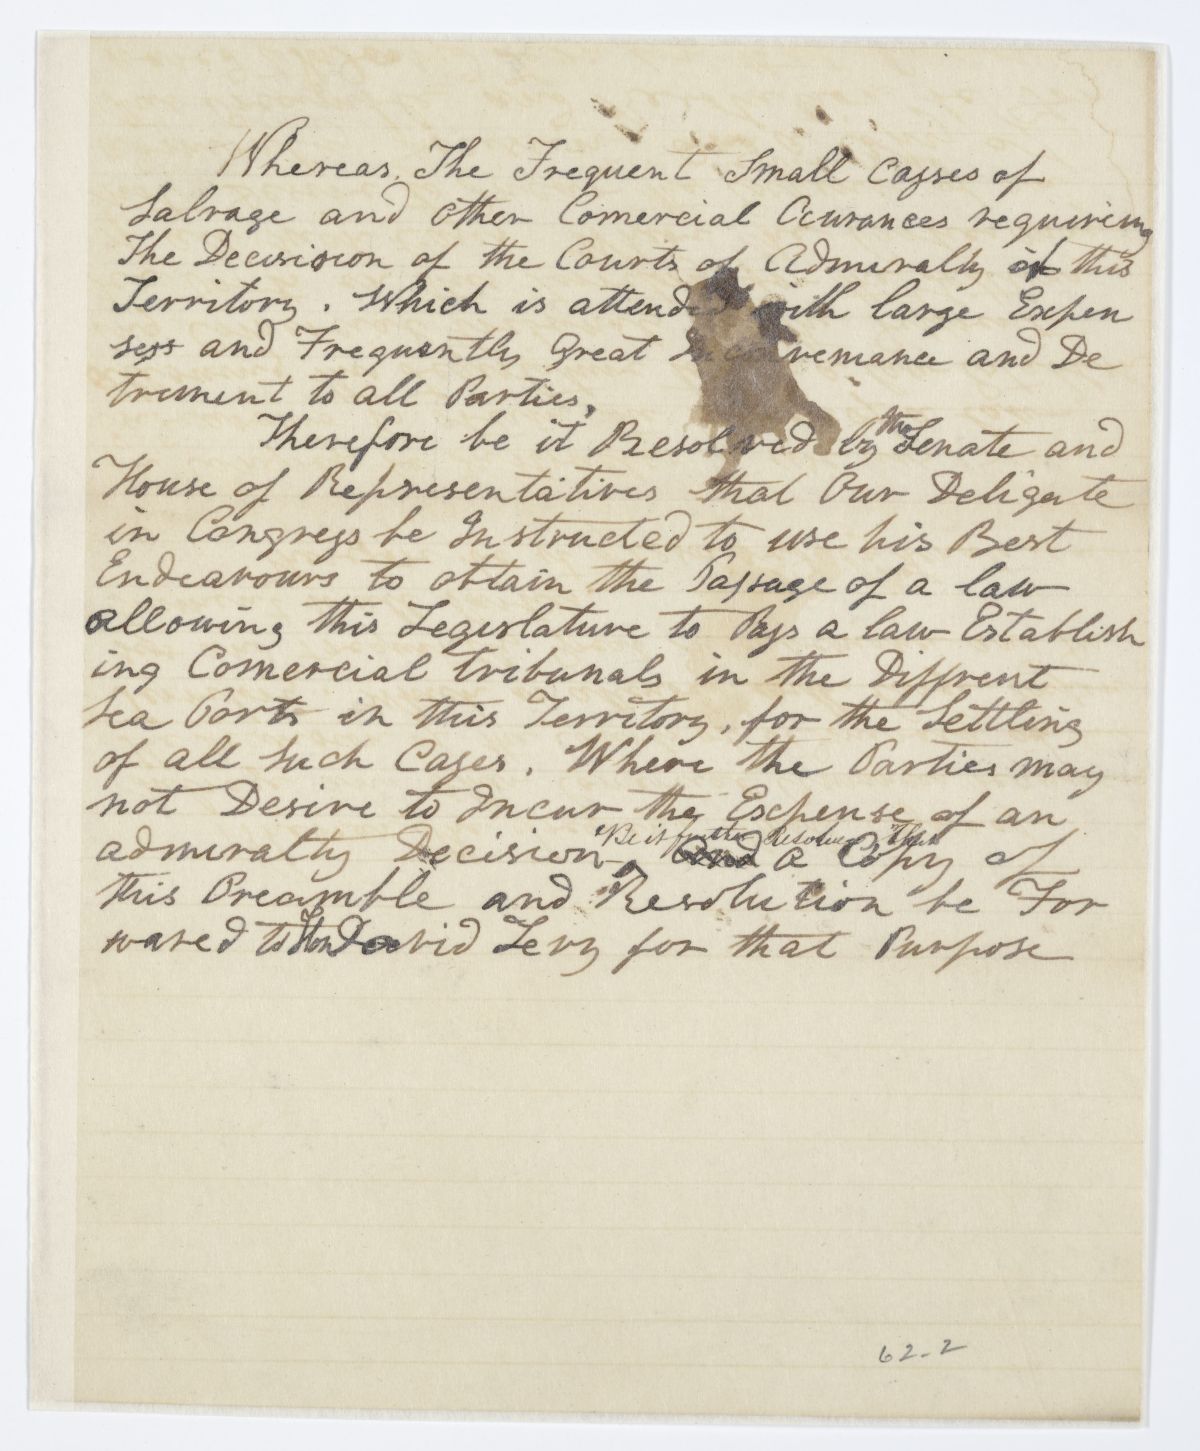 Whereas, The Frequent Small Casses of
Salvage and other Comercial Ocurances requireing
The Decisioion of the Courts of Admiralty of this
Territory. Which is attended with large Expen
sess and Frequently Great Inconvenance and De
trement to all Parties,
Therefore be it Resolved by the Senate and
House of Representatives that Our Deligate
in Congress be Instructed to use his Best
Endeavours to obtain the Passage of a law
allowing this Legislature to Pass a law Establish
ing Comercial tribunals in the Diffrent
Sea Ports in this Territory, for the Settling
of all Such Cases, Where the Parties may
not Desire to Incur the Expense of an
Be it further Resolved That
admiralty Decision, And a Copy of
this Preamble and Resolution be For
wared to Hon David Levy for that Purpose
62-2